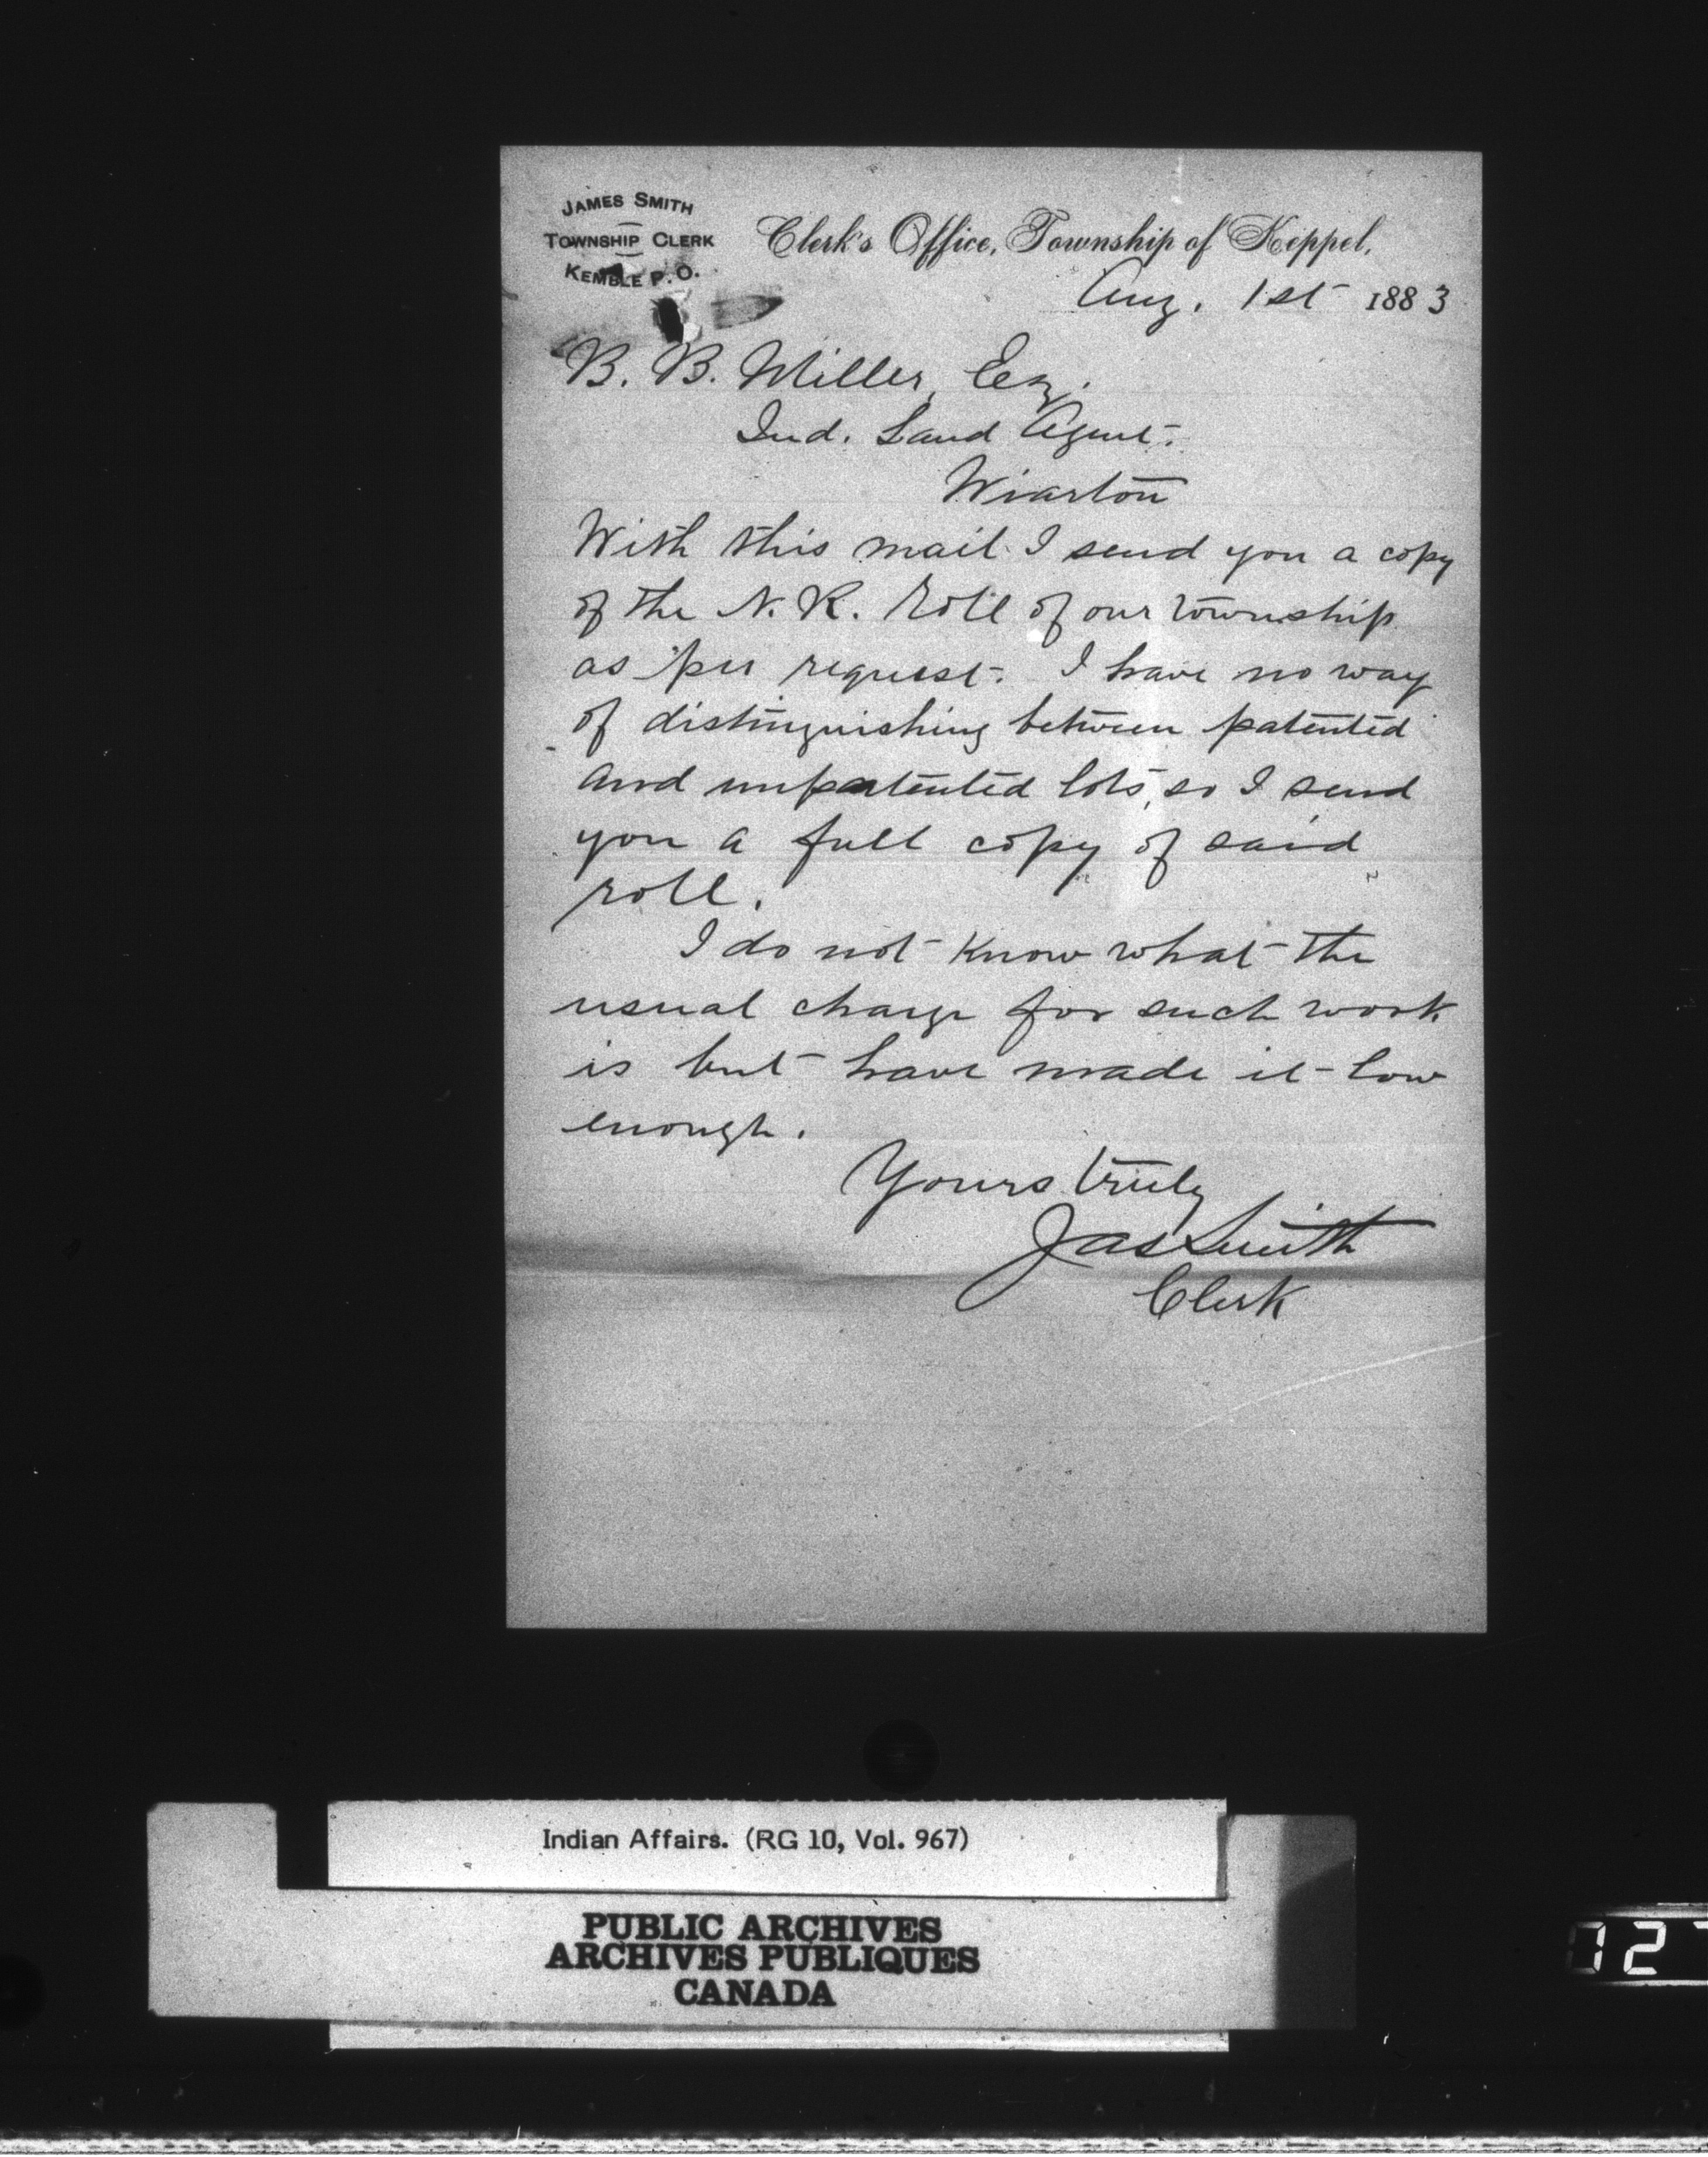 JAMES SMITH
TOWNSHIP CLERK
KEMBLE P.O.
Clerk's Office, Township of Keppel,
Aug. 1st 1883
B. B. Miller, Esq.
Ind. Land Agent.
Wiarton
With this mail I send you a copy
of the N.R. Roll of our township
as per request. I have no way
of distinguishing between patented
and unpatented lots, so I send
you a full copy of said
roll.
I do not know what the
usual charge for such work
is but have made it low
enough.
Yours truly
Jas Smith
Clerk
Indian Affairs. (RG 10, Vol. 967)
PUBLIC ARCHIVES
ARCHIVES PUBLIQUES
CANADA